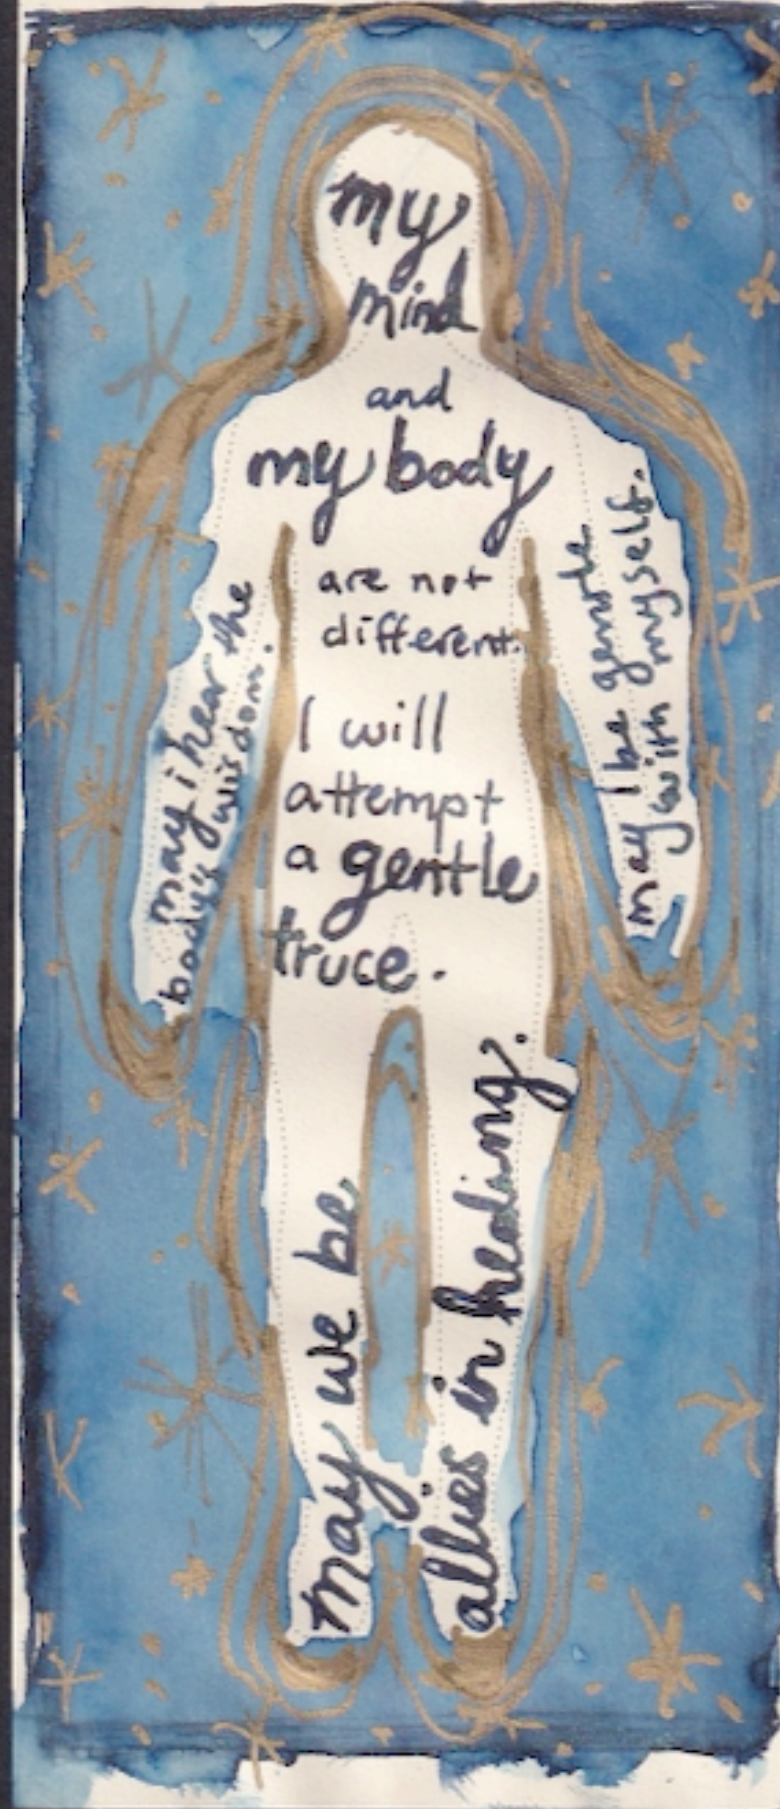 my
mind
and
my body
are not
different.
I will
attempt
a gentle
truce.
may i hear the
bodys wisdom.
may I be gentle
with myself.
may we be
allies in healing.